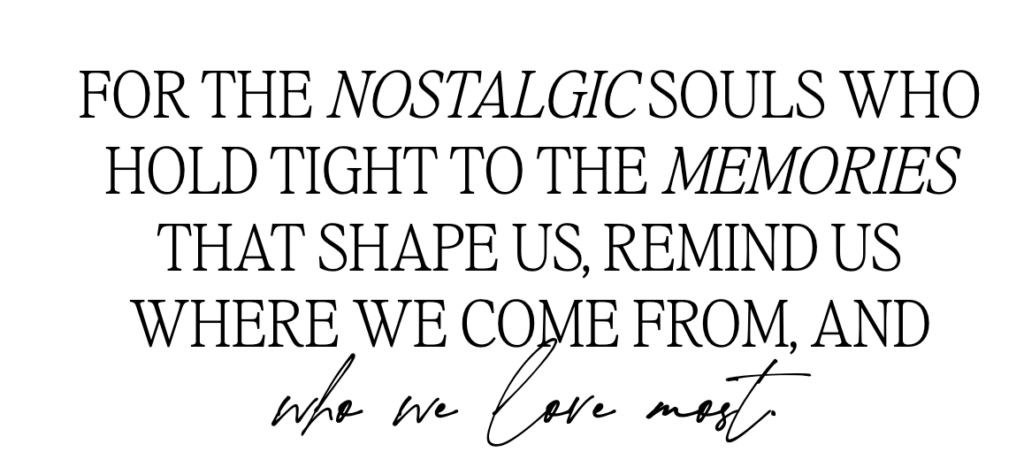 FOR THE NOSTALGIC SOULS WHO
HOLD TIGHT TO THE MEMORIES
THAT SHAPE US, REMIND US
WHERE WE COME FROM, AND
who we love most.